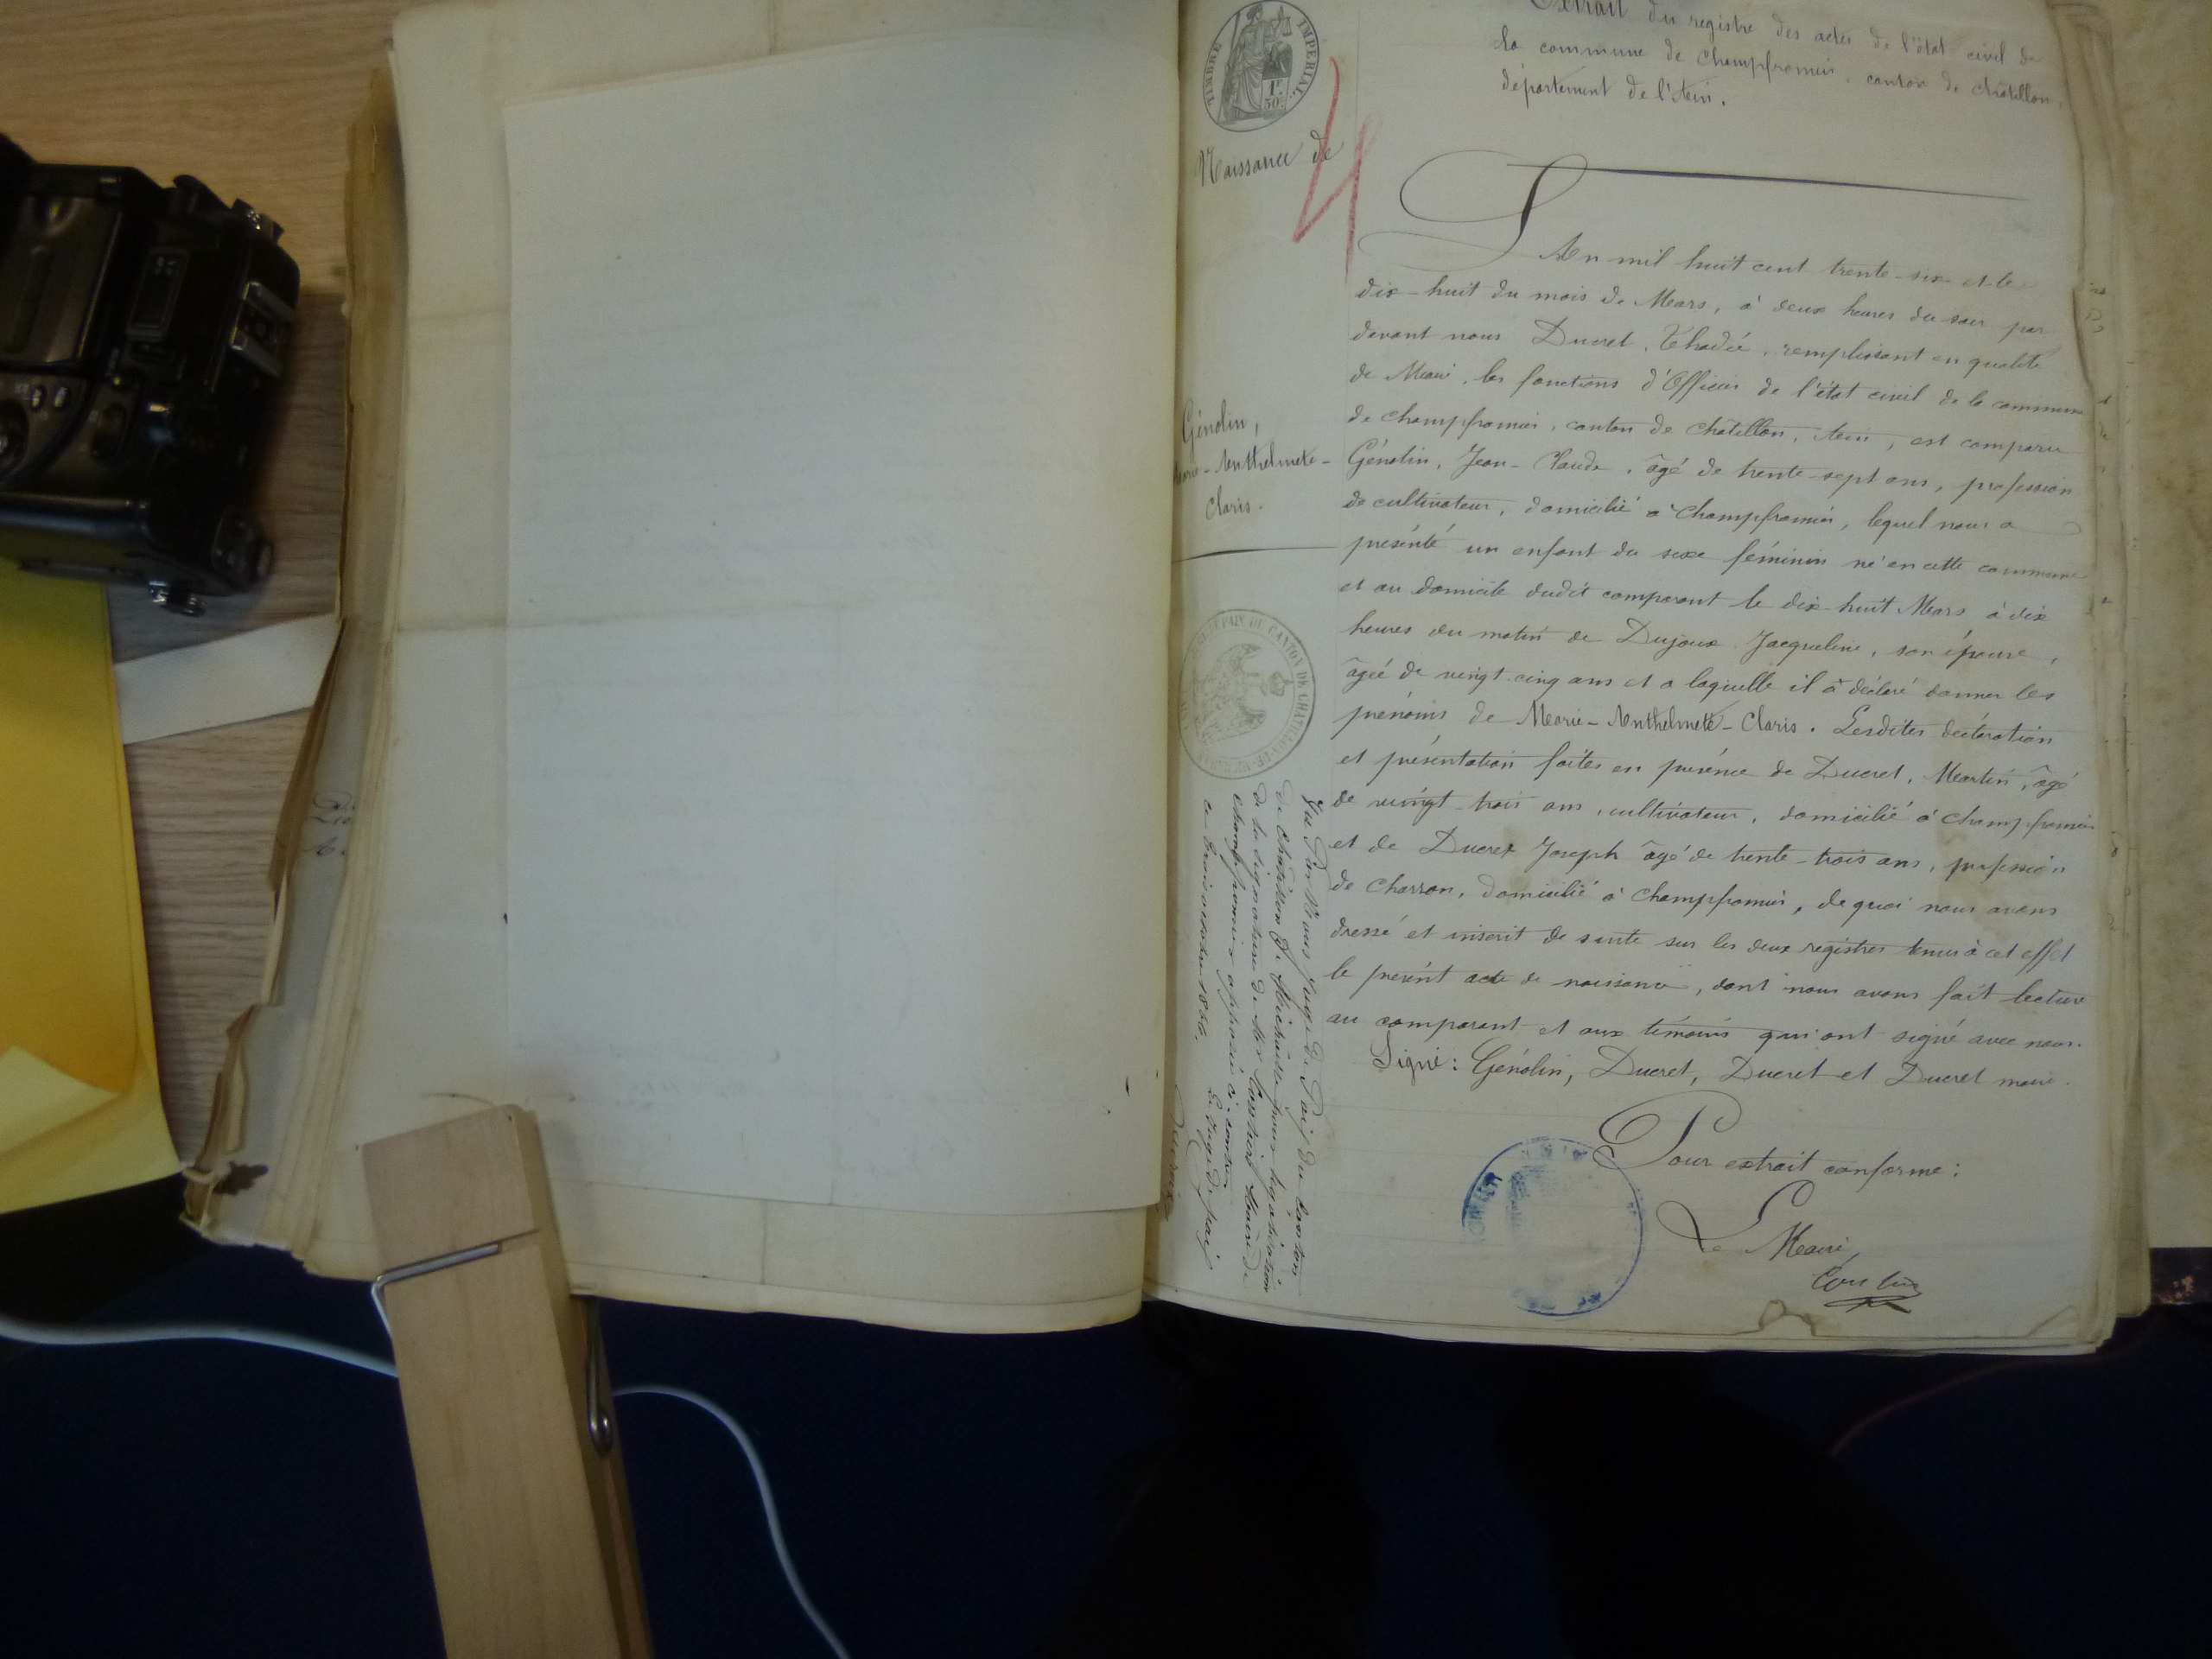 Extrait du registre des actes de l'état civil de
la commune de Champfromier, canton de Châtillon,
département de l'Ain.
TIMBRE IMPÉRIAL
1F.
50c.
Naissance de
Génolin,
Marie-Anthelmete-
Claris.
L'An mil huit cent trente-six et le
dix-huit du mois de Mars, à deux heures du soir par
devant nous Ducret, Thadée, remplissant en qualité
de Maire, les fonctions d'Officier de l'état civil de la commune
de Champfromier, canton de Châtillon, Ain, est comparu
Génolin, Jean-Claude, âgé de trente-sept ans, profession
de cultivateur, domicilié à Champfromier, lequel nous a
présenté un enfant du sexe féminin né en cette commune
et au domicile dudit comparant le dix-huit Mars à dix
heures du matin de Dujoux Jacqueline, son épouse,
âgée de vingt-cinq ans et a laquelle il a déclaré donner les
prénoms de Marie-Anthelmete-Claris. Lesdites déclaration
et présentation faites en présence de Ducret, Martin, âgé
de vingt-trois ans, cultivateur, domicilié à Champfromier
et de Ducret Joseph âgé de trente-trois ans, profession
de Charron, domicilié à Champfromier, de quoi nous avons
dressé et inscrit de suite sur les deux registres tenus à cet effet
le présent acte de naissance, dont nous avons fait lecture
au comparant et aux témoins qui ont signé avec nous.
Signé: Génolin, Ducret, Ducret et Ducret maire.
Pour extrait conforme:
Le Maire
Vu Par Nous Juge de Paix du Canton
de Châtillon de Michaille pour légalisation
de la signature de Mr Maire de
Champfromier apposée ci-contre
Le Juge de paix
PAIX DU CANTON DE CHATILLON-DE-MICHAILLE